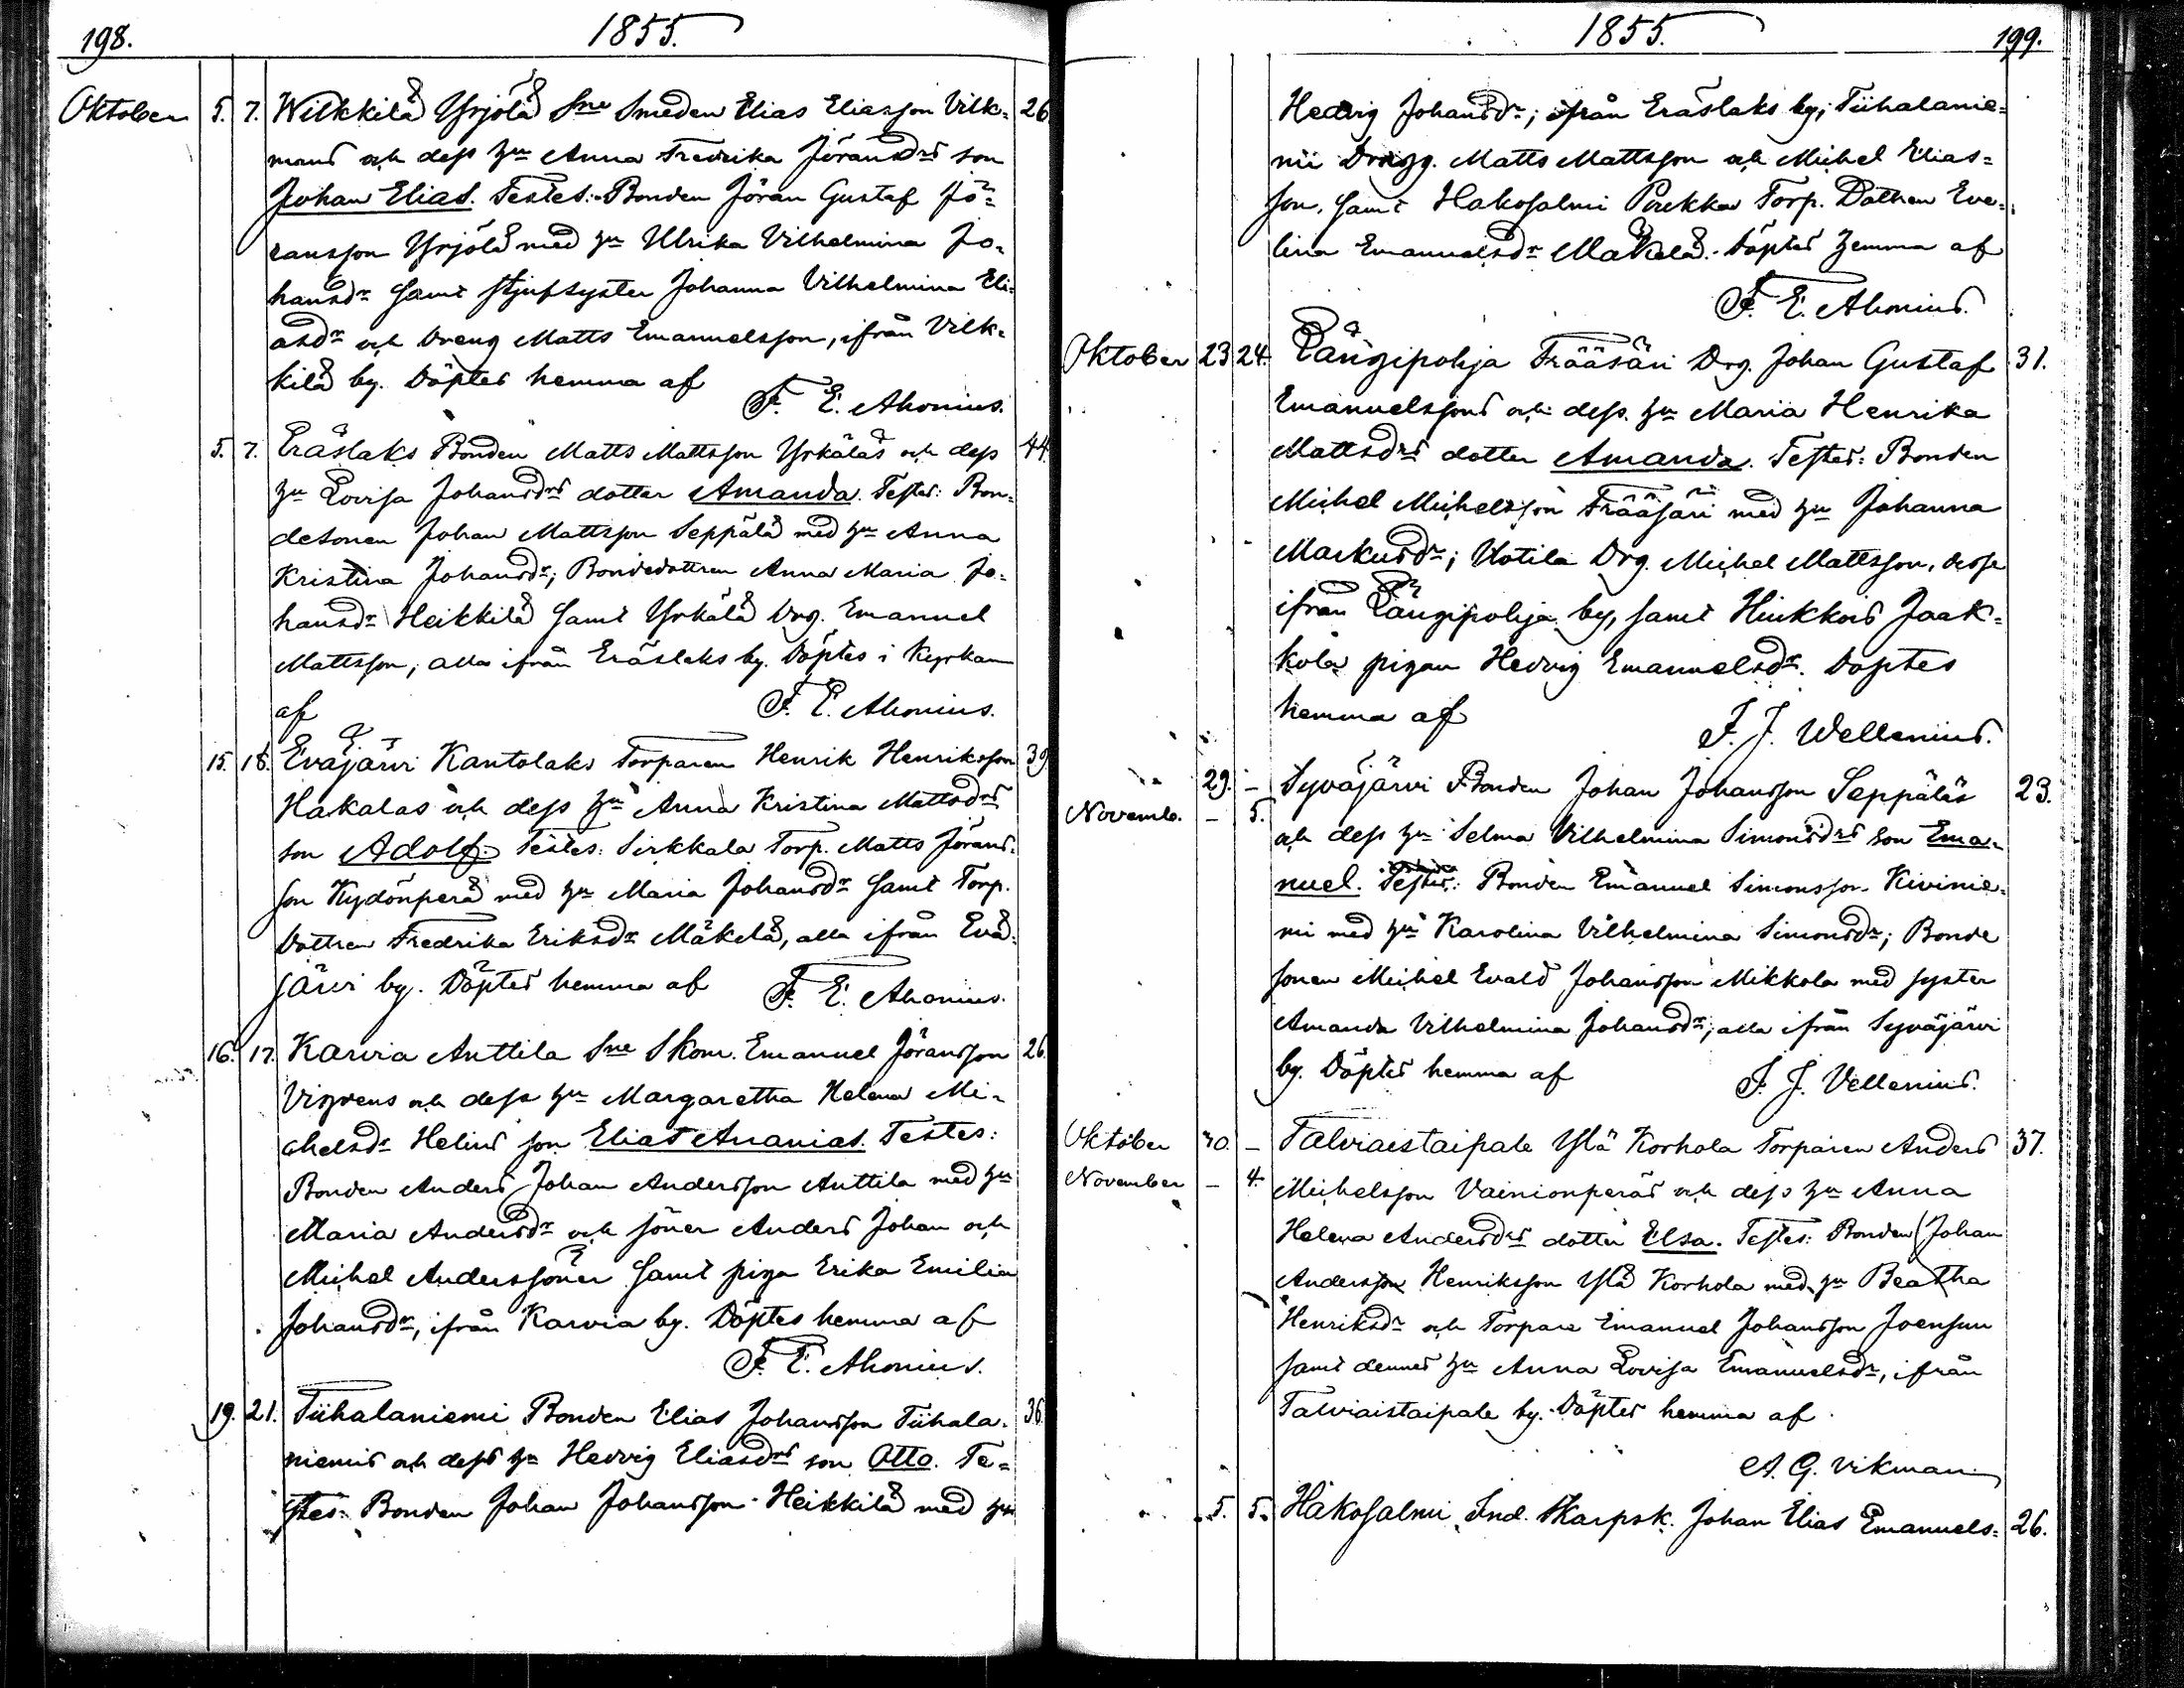 198.
1855.
Oktober 5. 7. Wilkkilä Yrjölä Sne Smeden Elias Eliasson Vilk= 26
mans och dess hu Anna Fredrika Jöransdrs son
Johan Elias. Testes: Bonden Jöran Gustaf Jö=
ransson Yrjölä med hu Ulrika Vilhelmina Jo=
hansdr samt stjufsyster Johanna Vilhelmina Eli=
asdr och Dreng Matts Emanuelsson, ifrån Vilk=
kilä by. Döptes hemma af
F. E. Ahonius.
5. 7. Eräslaks Bonden Matts Mattsson Yrkäläs och dess 44.
hu Lovisa Johansdrs dotter Amanda. Testes: Bon=
desonen Johan Mattsson Seppälä med hu Anna
Kristina Johansdr; Bondedottren Anna Maria Jo=
hansdr Heikkilä samt Yrkälä Drg. Emanuel
Mattsson, alla ifrån Eräslaks by. Döptes i Kyrkan
af F. E. Ahonius.
15. 18. Eväjärvi Kantolaks Torparen Henrik Henriksson 39
Hakalas och dess hu Anna Kristina Mattsdrs
son Adolf. Testes: Sirkkala Torp. Matts Jörans=
son Kydönperä med hu Maria Johansdr samt Torp.
dottren Fredrika Eriksdr Mäkelä, alla ifrån Evä=
järvi by. Döptes hemma af F. E. Ahonius.
16. 17. Karvia Anttila Sne Skom. Emanuel Jöransson 26.
och dess hu Margaretha Helena Mi=
chelsdr Helins son Elias Ananias. Testes:
Bonden Anders Johan Andersson Anttila med hu
Maria Andersdr och söner Anders Johan och
Michel Anderssöner samt piga Erika Emilia
Johansdr, ifrån Karvia by. Döptes hemma af
F. E. Ahonius.
19. 21. Tiihalaniemi Bonden Elias Johansson Tiihala= 36.
niemis och dess hu Hedvig Eliasdrs son Otto. Te=
stes: Bonden Johan Johansson Heikkilä med hu
1855.
199.
Hedvig Johansdr; ifrån Eräslaks by; Tiihalanie=
mi Drengg. Matts Mattsson och Michel Elias=
son, samt Hakosalmi Pirkka Torp. Dottren Eve=
lina Emanuelsdr Mäkelä. Döptes hemma af
F. E. Ahonius.
Oktober 23 24. Längipohja Trääsäri Drg. Johan Gustaf 31.
Emanuelssons och dess hu Maria Henrika
Mattsdrs dotter Amanda. Testes: Bonden
Michel Michelsson Trääsäri med hu Johanna
Markusdr; Uotila Drg. Michel Mattsson, desse
ifrån Längipohja by, samt Hinkkois Jaak=
kola pigan Hedvig Emanuelsdr. Döptes
hemma af
F. J. Wellenius.
29. – Syväjärvi Bonden Johan Johansson Seppäläs 23.
Novemb. – 5. och dess hu Selma Vilhelmina Simonsdrs son Ema=
nuel. Testes: Bonden Emanuel Simonsson Kivinie=
mi med hu Karolina Vilhelmina Simonsdr; Bonde
sonen Michel Evald Johansson Mikkola med syster
Amanda Vilhelmina Johansdr; alla ifrån Syväjärvi
by. Döptes hemma af
F. J. Vellenius.
Oktober 30. – Talviaistaipale Ylä Korhola Torparen Anders 37.
November – 4. Michelsson Vainionperäs och dess hu Anna
Helena Andersdrs dotter Elsa. Testes: Bonden Johan
Andersson Henriksson Ylä Korhola med hu Beatha
Henriksdr och Torpare Emanuel Johansson Joensuu
samt dennes hu Anna Lovisa Emanuelsdr, ifrån
Talviaistaipale by. Döptes hemma af
A. G. Vikman
5. 5. Hakosalmi Ind. Skarpsk. Johan Elias Emanuels= 26.